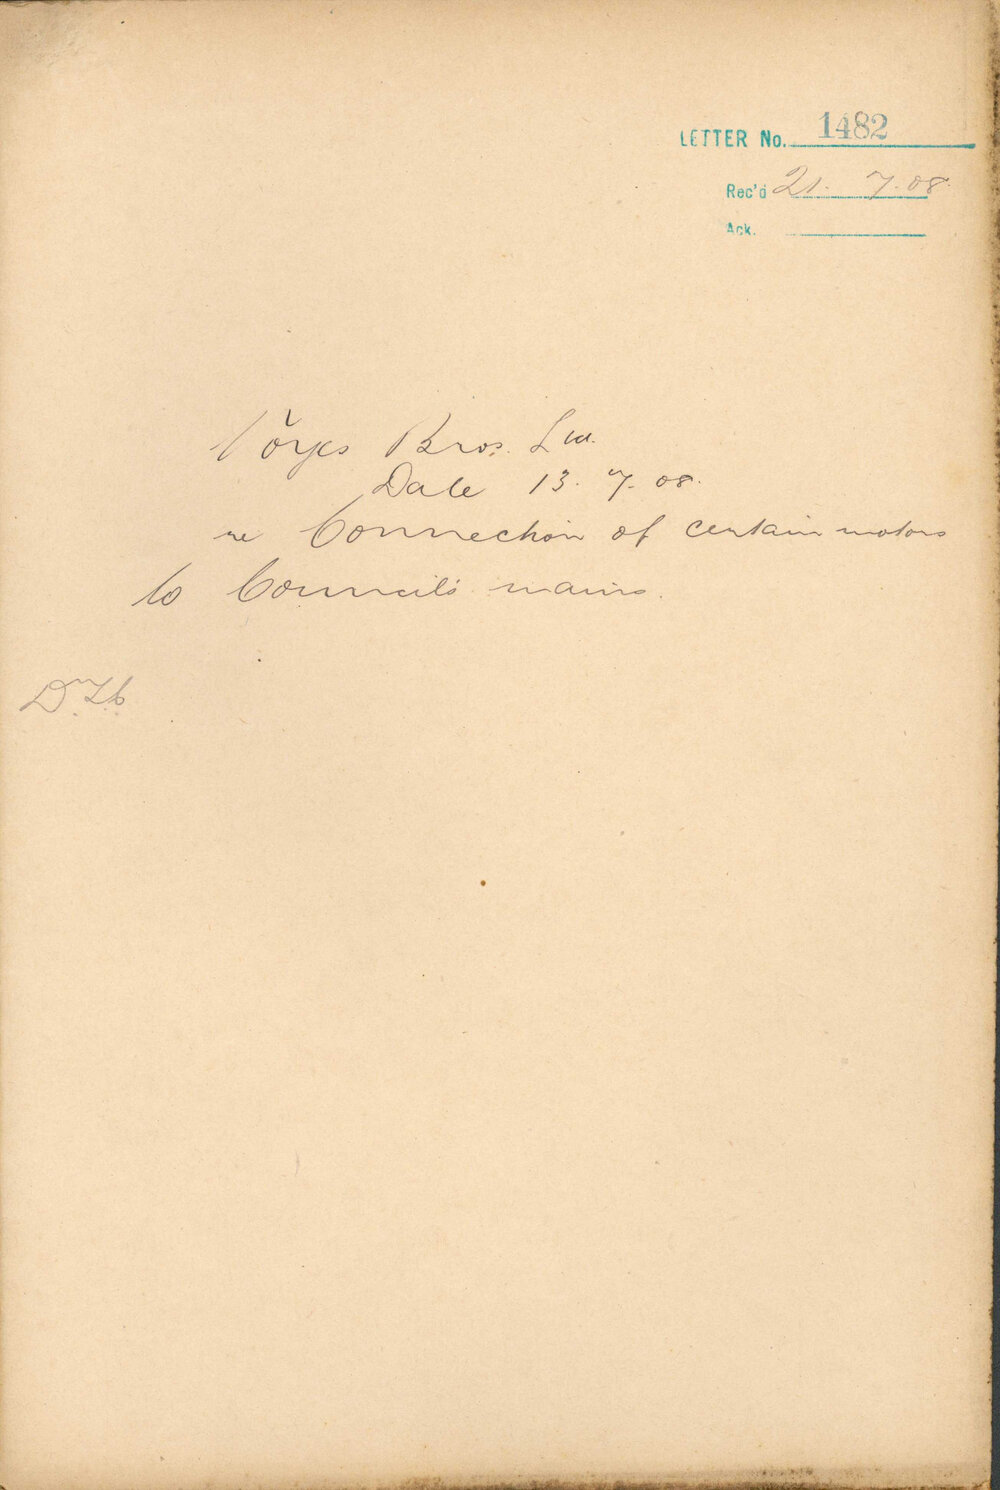 LETTER No. 1482
Rec'd 21. 7. 08.
Ack.
Noyes Bros. Ltd.
Date 13. 7. 08.
re Connection of certain motors
to Council's mains.